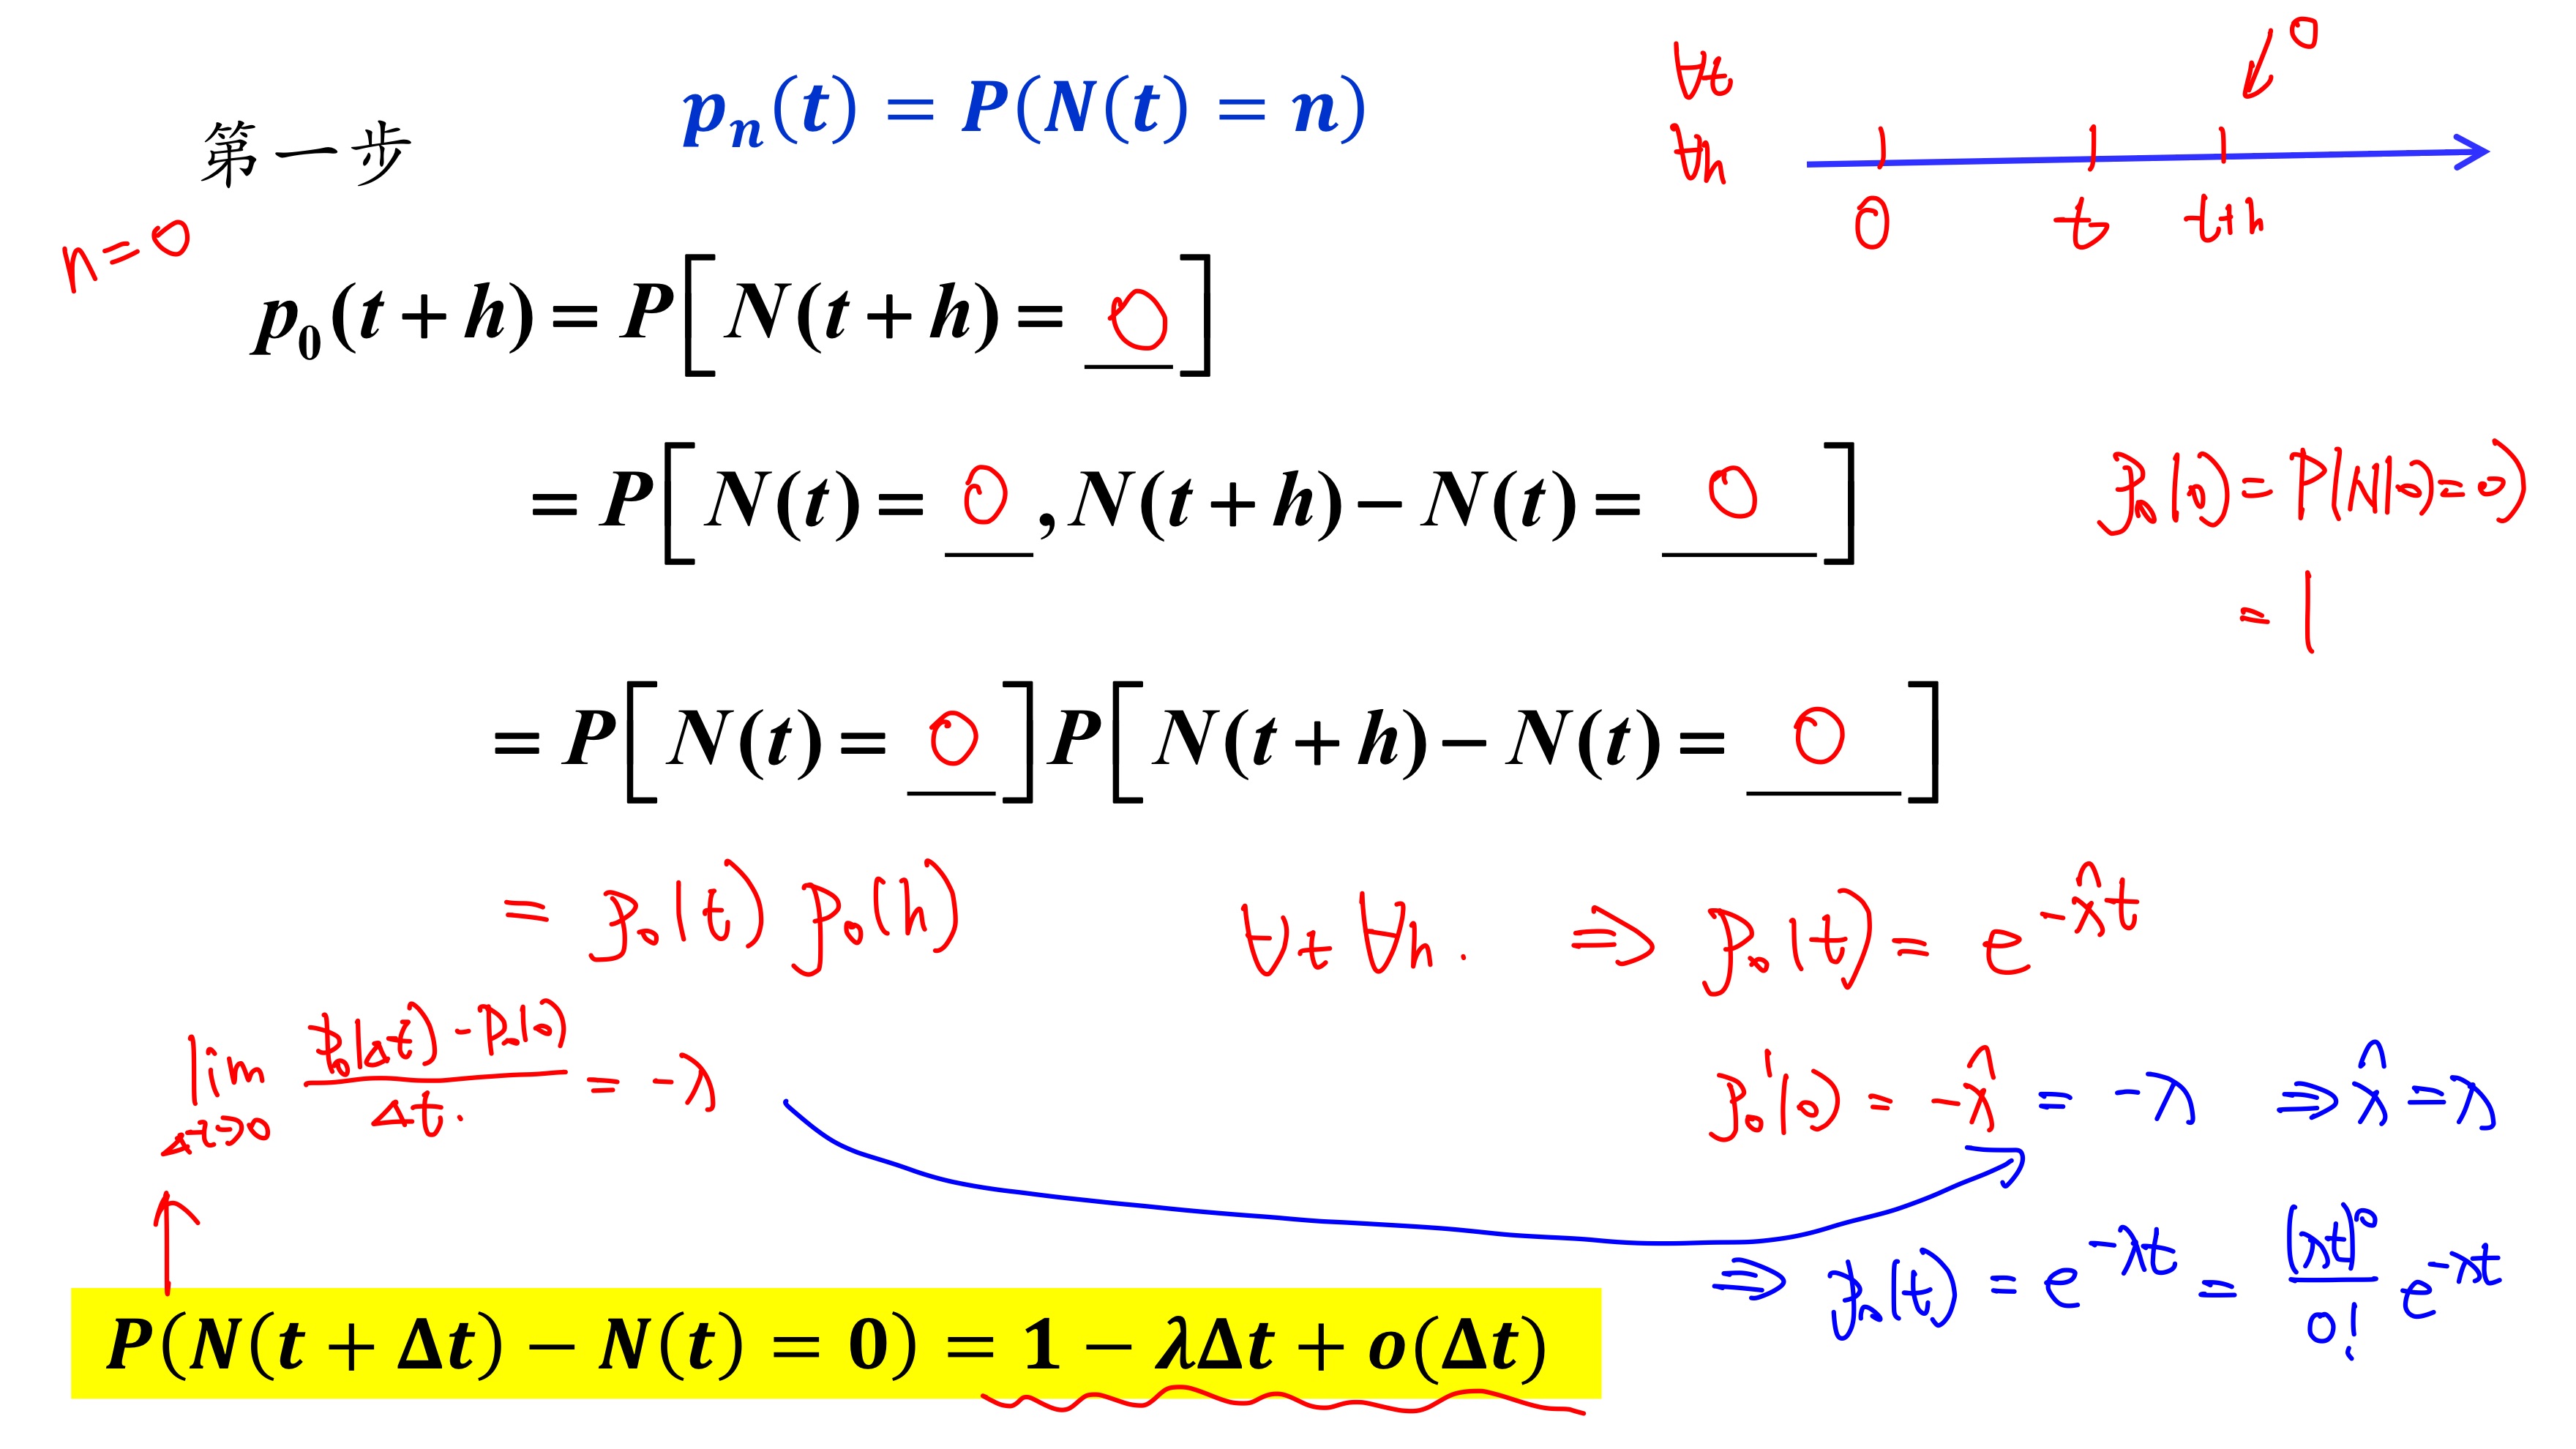 第一步
pₙ(t) = P(N(t) = n)
∀t
∀h
0
0 t t+h
n=0
p₀(t + h) = P[N(t + h) = 0]
= P[N(t) = 0, N(t + h) − N(t) = 0]
p₀(0) = P(N(0)=0)
= 1
= P[N(t) = 0]P[N(t + h) − N(t) = 0]
= p₀(t) p₀(h) ∀t ∀h. ⇒ p₀(t) = e^{-λ̂t}
lim_{Δt→0} (p₀(Δt) - p₀(0))/Δt. = -λ
p₀'(0) = -λ̂ = -λ ⇒ λ̂ = λ
⇒ p₀(t) = e^{-λt} = (λt)⁰/0! e^{-λt}
P(N(t + Δt) − N(t) = 0) = 1 − λΔt + o(Δt)